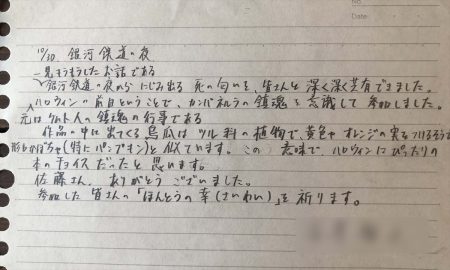 No.
Date
10/30. 銀河鉄道の夜
銀河鉄道の夜からにじみ出る死の匂いを、皆さんと深く深く共有できました。
ハロウィンの前日ということで、カンパネルラの鎮魂を意識して参加しました。
元はケルト人の鎮魂の行事である
作品の中に出てくる烏瓜はツル科の植物で、黄色やオレンジの実をつけるそうで
かぼちゃ(特にパンプキン)と似ています。この意味で、ハロウィンにぴったりの
本のチョイスだったと思います。
佐藤さん、ありがとうございました。
参加した皆さんの「ほんとうの幸(さいわい)」を祈ります。